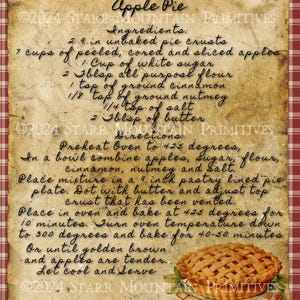 ©2024 Starr Mountain Primitives
Apple Pie
Ingredients:
2 9 in unbaked pie crusts
7 cups of peeled, cored and sliced apples
1 Cup of white sugar
2 Tblsp all purpose flour
1 tsp of ground cinnamon
1/8 tsp of ground nutmeg
1/4 tsp of salt
©2024 Starr Mountain Primitives
2 Tblsp of butter
Directions:
Preheat Oven to 425 degrees,
In a bowl combine apples, sugar, flour,
cinnamon, nutmeg and Salt.
Place mixture in 9 inch pastry lined pie
plate. Dot with butter and adjust top
crust that has been vented.
Place in oven and bake at 425 degrees for
10 minutes. Turn oven temperature down
to 300 degrees and bake for 40-50 minutes
Or until golden brown
and apples are tender.
Let cool and Serve
©2024 Starr Mountain Primitives